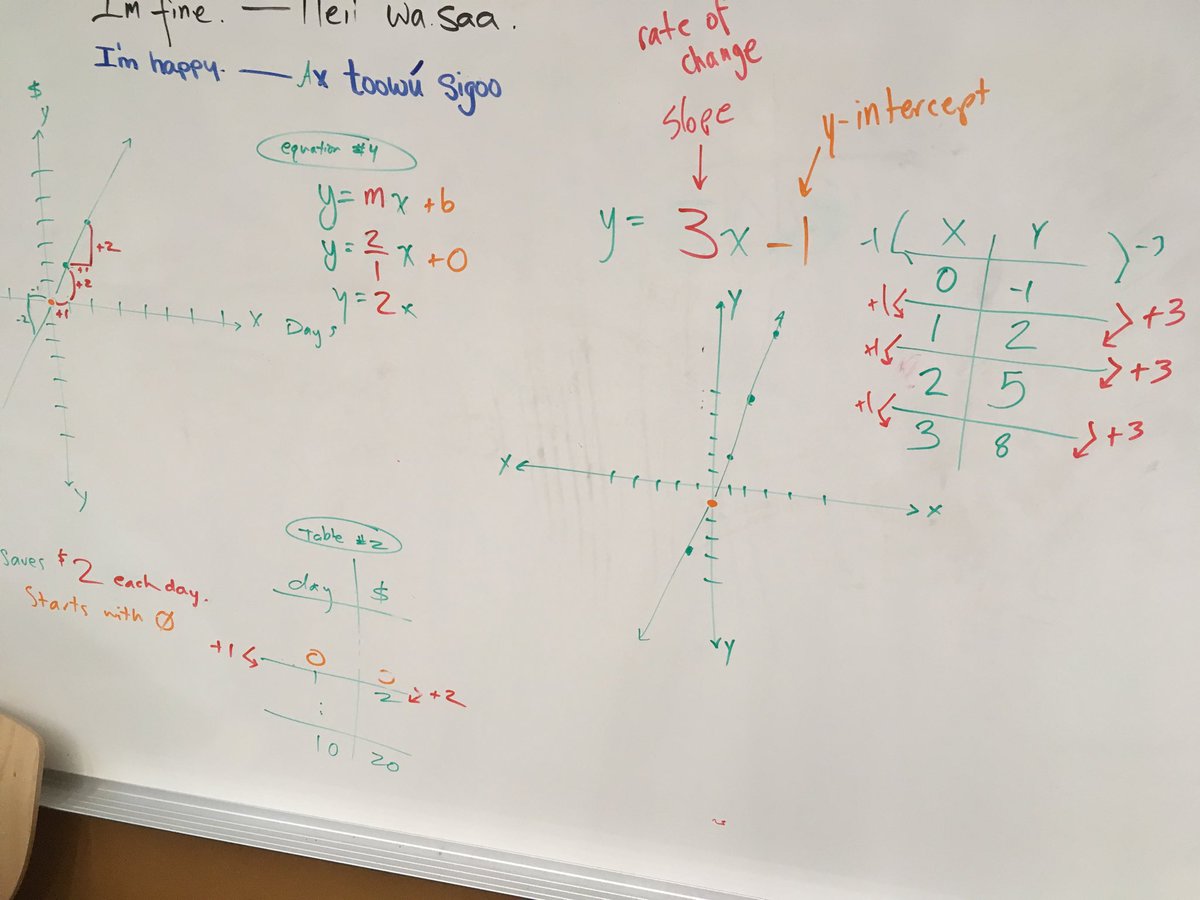 I'm fine. — wa.saa.
I'm happy. — Ax toowú sigoo
$
y
+2
+1
+2
+1
-2
x
Days
y
equation #4
y = mx + b
y = 2/1 x + 0
y = 2x
saves $2 each day.
Starts with 0
Table #2
day $
0 0
+1 1 2 +2
:
10 20
rate of
change
slope
y-intercept
y = 3x - 1
-1 X Y -3
0 -1
+1 +3
1 2
+1 +3
2 5
+1 +3
3 8
Y
X
X
Y